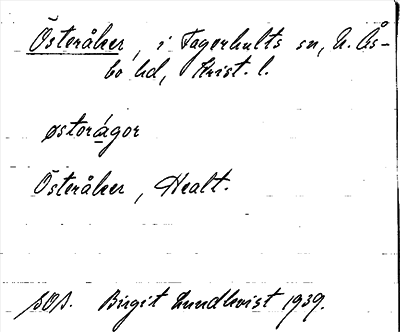 Österåker, i Fagerhults sn, N. Ås-
bo hd, Krist. l.
østorágor
Österåker, Healt.
SOS. Birgit Lundkvist 1939.